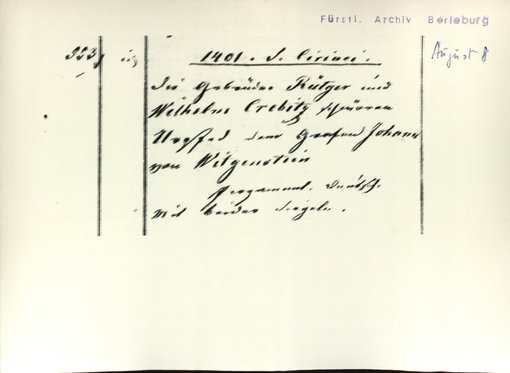 Fürstl. Archiv Berleburg
August 8
1401. S. Ciriaci.
Die Gebrüder Rütger und
Wilhelm Crebitz schwören
Urfhed dem Grafen Johann
von Witgenstein
Pergament. Deutsch.
Mit beider Siegeln.